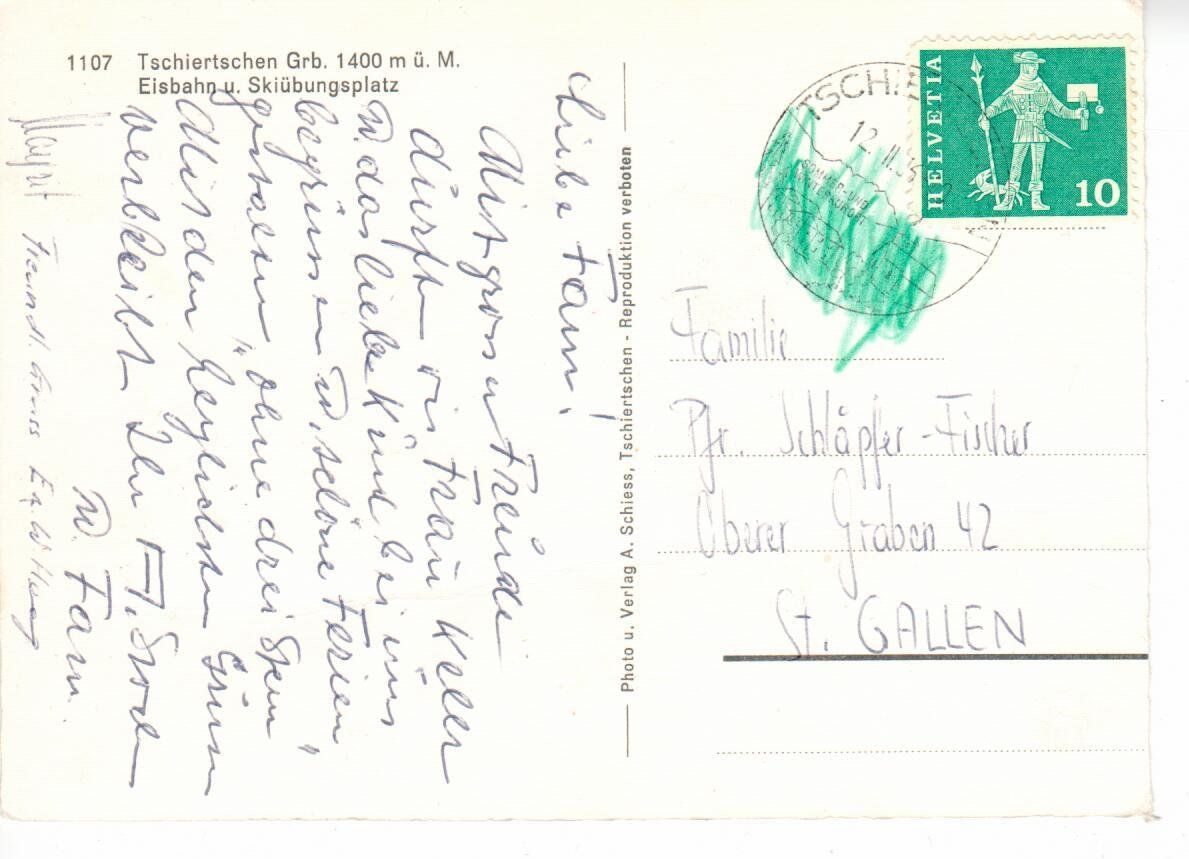 1107 Tschiertschen Grb. 1400 m ü. M.
Eisbahn u. Skiübungsplatz
Liebe Fam!
Mit grosser Freude
durft wir Frau Keller
u. das liebe Kind bei uns
begrüssen u. schöne Ferien
"ohne drei Stern"
Mit den herzlichsten Grüssen
verbleibt Ihr
u. Fam.
Photo u. Verlag A. Schiess, Tschiertschen - Reproduktion verboten
TSCHIE
12. II.
HELVETIA
10
Familie
Pfr. Schläpfer-Fischer
Oberer Graben 42
St. GALLEN